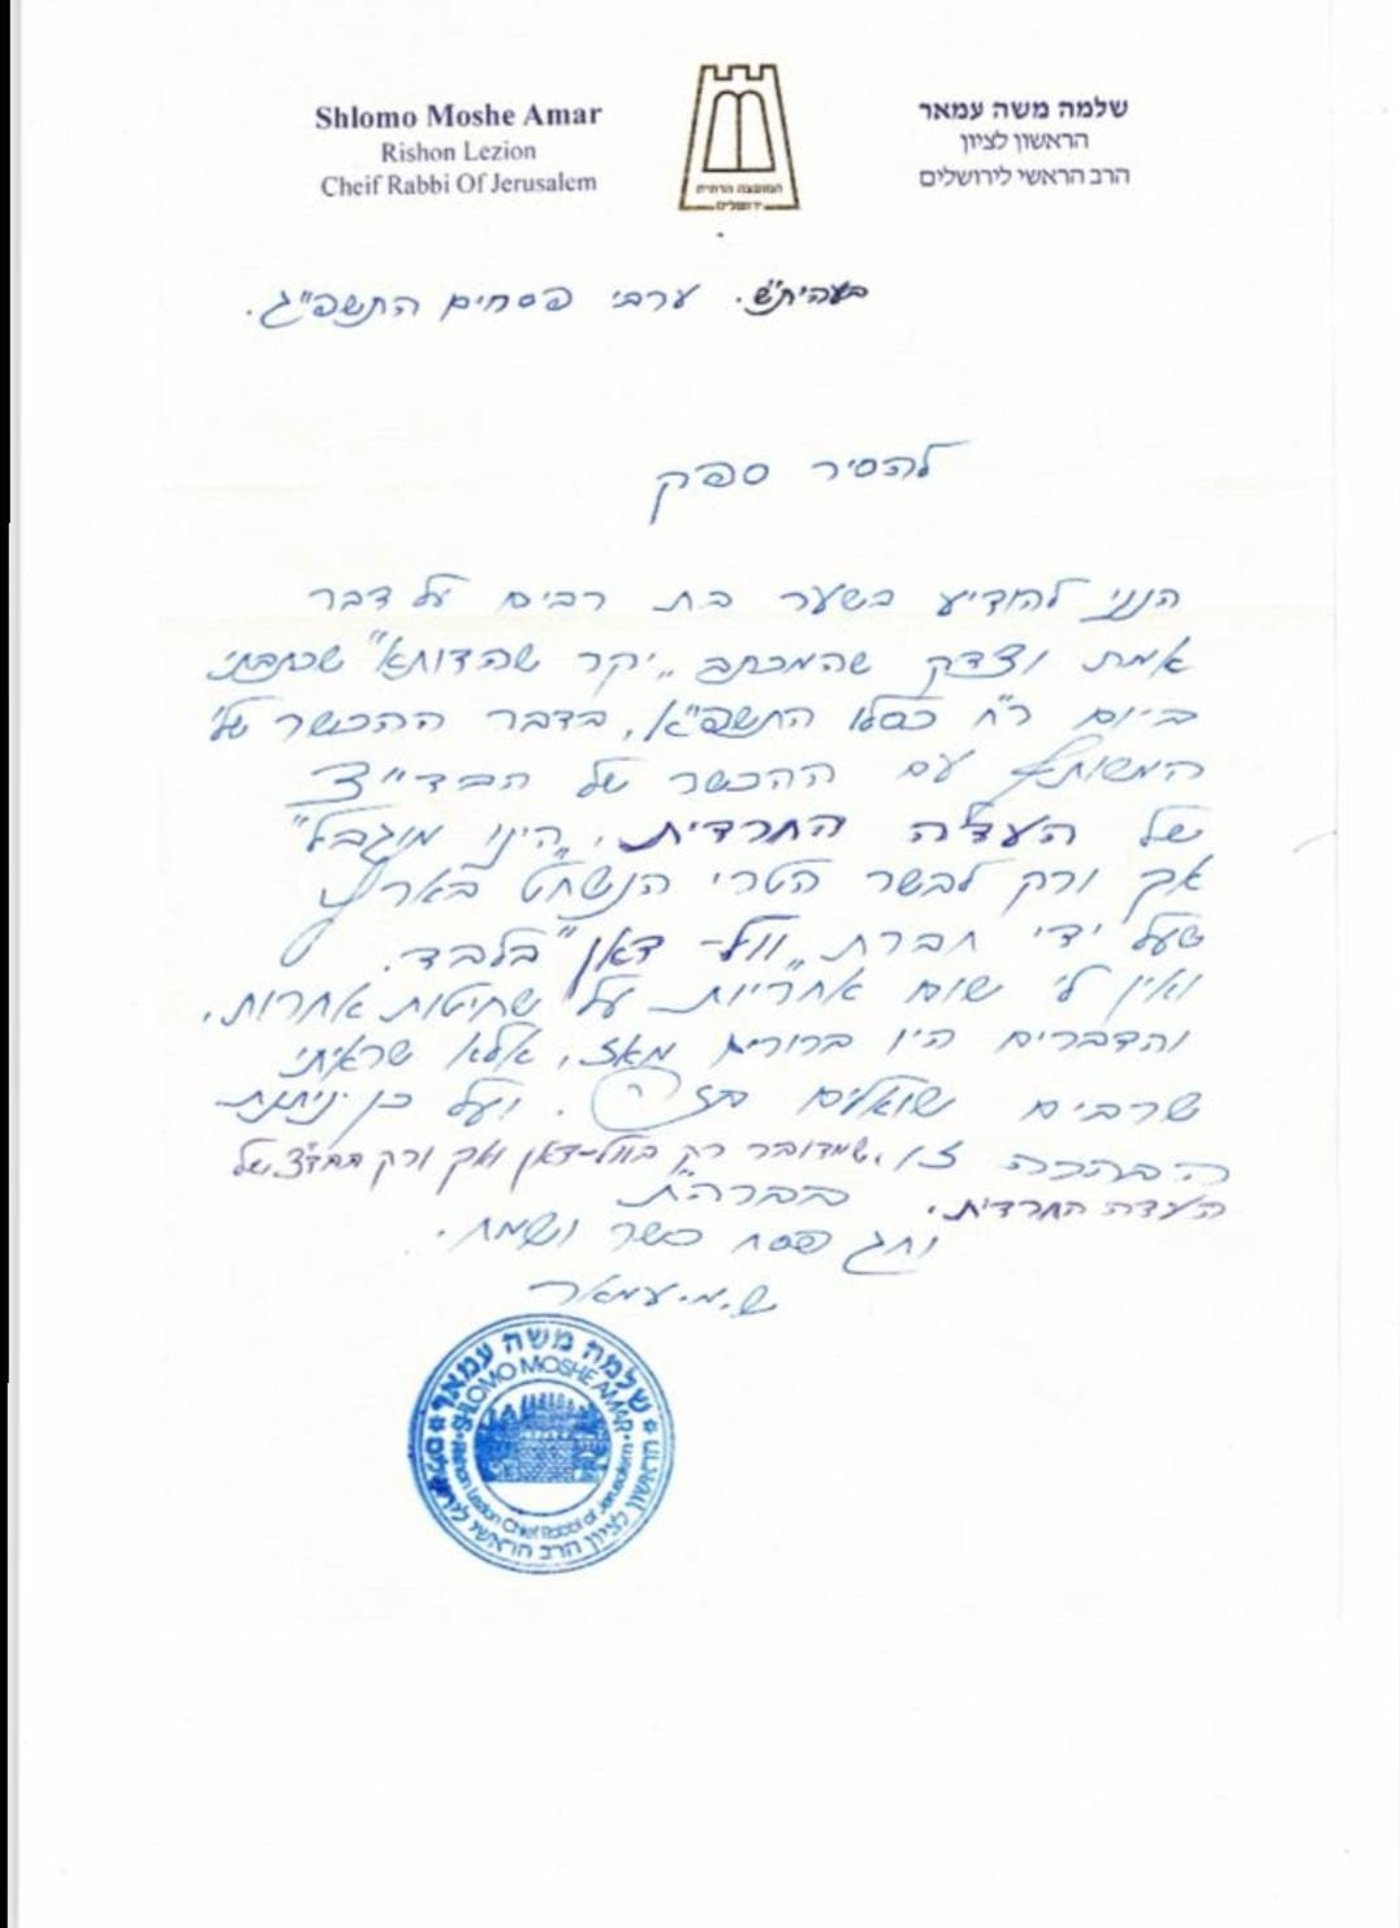 Shlomo Moshe Amar
Rishon Lezion
Cheif Rabbi Of Jerusalem
שלמה משה עמאר
הראשון לציון
הרב הראשי לירושלים
המועצה הדתית
ירושלים
בעהית"ש. ערבי פסחים התשפ"ג.
להסיר ספק
הנני להודיע בשער בת רבים על דבר
אמת וצדק שהמכתב "יקר שהדותא" שכתבתי
ביום ר"ח כסלו התשפ"א, בדבר ההכשר שלי
המשותף עם ההכשר של הבד"ץ
של העדה החרדית, "הינו מוגבל"
אך ורק לבשר הטרי הנשחט בארץ
שעל ידי חברת "וול-דאן" בלבד.
ואין לי שום אחריות על שחיטות אחרות,
והדברים היו ברורים מאז, אלא שראיתי
שרבים שואלים בזה. ועל כן ניתנת
הבהרה זו, שמדובר רק בוול-דאן ואך ורק בבד"צ של
העדה החרדית.
בברה"ת
וחג פסח כשר ושמח.
ש.מ. עמאר
שלמה משה עמאר
SHLOMO MOSHE AMAR
Rishon Lezion Chief Rabbi of Jerusalem
הראשון לציון הרב הראשי לירושלים